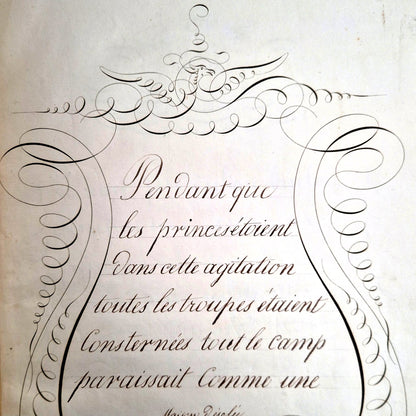 Pendant que
les princes étoient
dans cette agitation
toutes les troupes étaient
Consternées tout le camp
paraissait Comme une